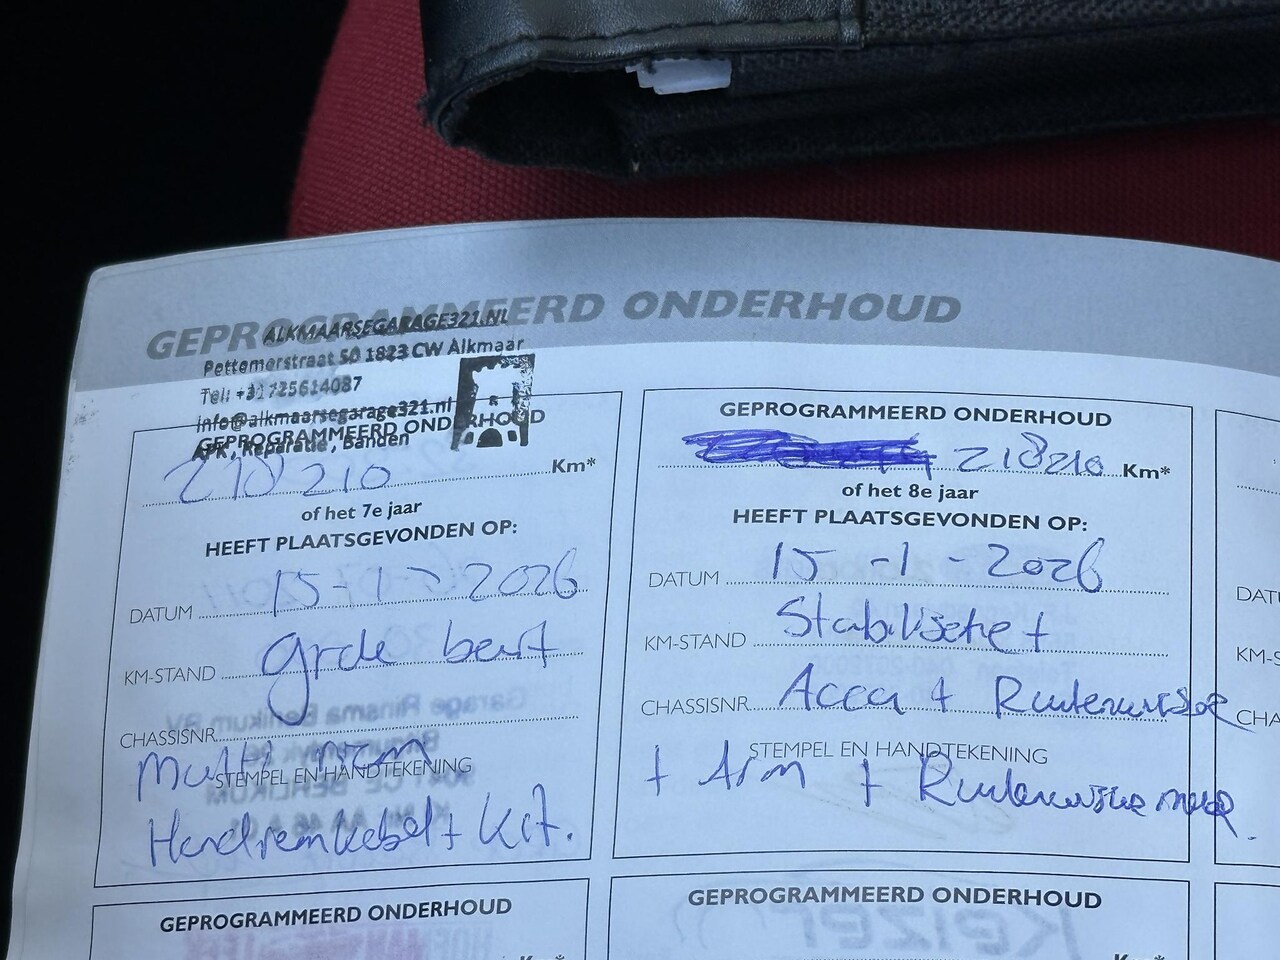 GEPROGRAMMEERD ONDERHOUD
ALKMAARSEGARAGE321.NL
Pettemerstraat 50 1823 CW Alkmaar
Tel: +31725614087
info@alkmaarsegarage321.nl
APK, Reparatie, Banden
GEPROGRAMMEERD ONDERHOUD
218210 Km*
of het 7e jaar
HEEFT PLAATSGEVONDEN OP:
DATUM 15-1-2026
KM-STAND grote beurt
CHASSISNR
Multi riem
STEMPEL EN HANDTEKENING
Handremkabel + Kit.
GEPROGRAMMEERD ONDERHOUD
218210 Km*
of het 8e jaar
HEEFT PLAATSGEVONDEN OP:
DATUM 15-1-2026
KM-STAND Stabilisator
CHASSISNR Accu + Ruitenwisser
STEMPEL EN HANDTEKENING
+ Arm + Ruitenwisser
DATU
KM-S
CHA
GEPROGRAMMEERD ONDERHOUD
Km*
GEPROGRAMMEERD ONDERHOUD
Km*